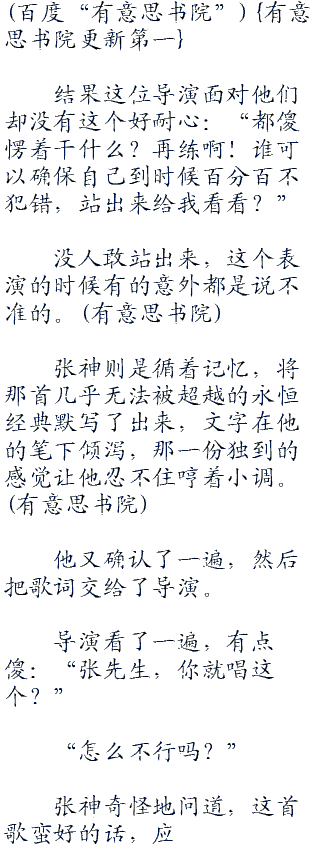 (百度“有意思书院”) {有意
思书院更新第一}
结果这位导演面对他们
却没有这个好耐心：“都傻
愣着干什么？再练啊！谁可
以确保自己到时候百分百不
犯错，站出来给我看看？”
没人敢站出来，这个表
演的时候有的意外都是说不
准的。(有意思书院)
张神则是循着记忆，将
那首几乎无法被超越的永恒
经典默写了出来，文字在他
的笔下倾泻，那一份独到的
感觉让他忍不住哼着小调。
(有意思书院)
他又确认了一遍，然后
把歌词交给了导演。
导演看了一遍，有点
傻：“张先生，你就唱这
个？”
“怎么不行吗？”
张神奇怪地问道，这首
歌蛮好的话，应